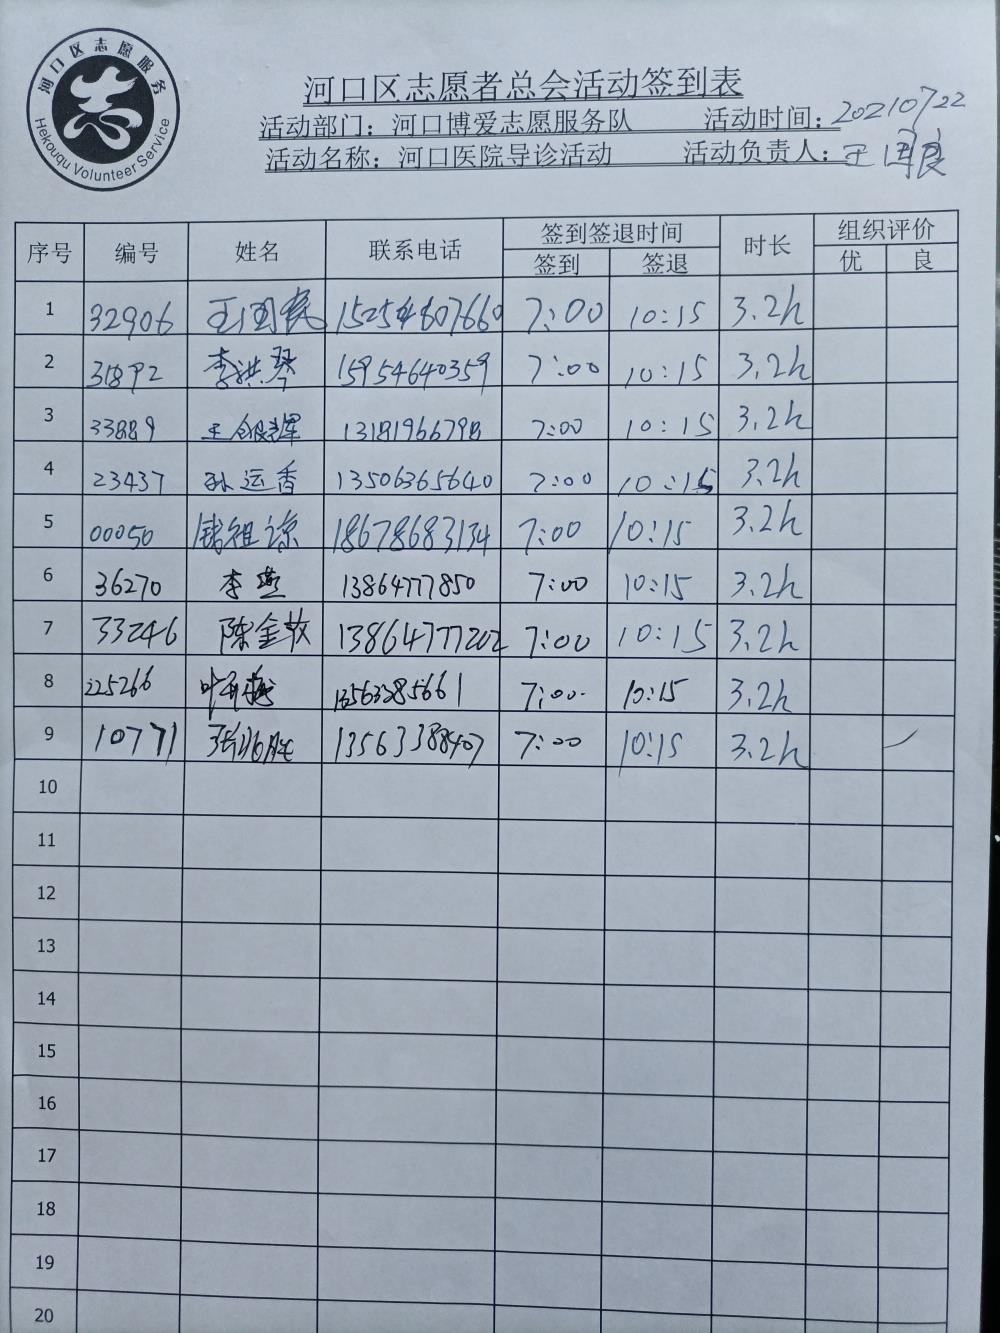 河口区志愿服务
志
Hekouqu Volunteer Service
河口区志愿者总会活动签到表
活动部门：河口博爱志愿服务队 活动时间：20210722
活动名称：河口医院导诊活动 活动负责人：王国良
序号 编号 姓名 联系电话 签到签退时间 时长 组织评价
签到 签退 优 良
1 32906 王国良 15254607660 7:00 10:15 3.2h
2 31892 李洪琴 15954640359 7:00 10:15 3.2h
3 33889 13181966798 7:00 10:15 3.2h
4 23437 孙运香 13506365640 7:00 10:15 3.2h
5 00050 18678683134 7:00 10:15 3.2h
6 36270 李燕 13864777850 7:00 10:15 3.2h
7 33246 陈金放 13864777202 7:00 10:15 3.2h
8 225266 7:00 10:15 3.2h
9 10771 13563388407 7:00 10:15 3.2h
10
11
12
13
14
15
16
17
18
19
20